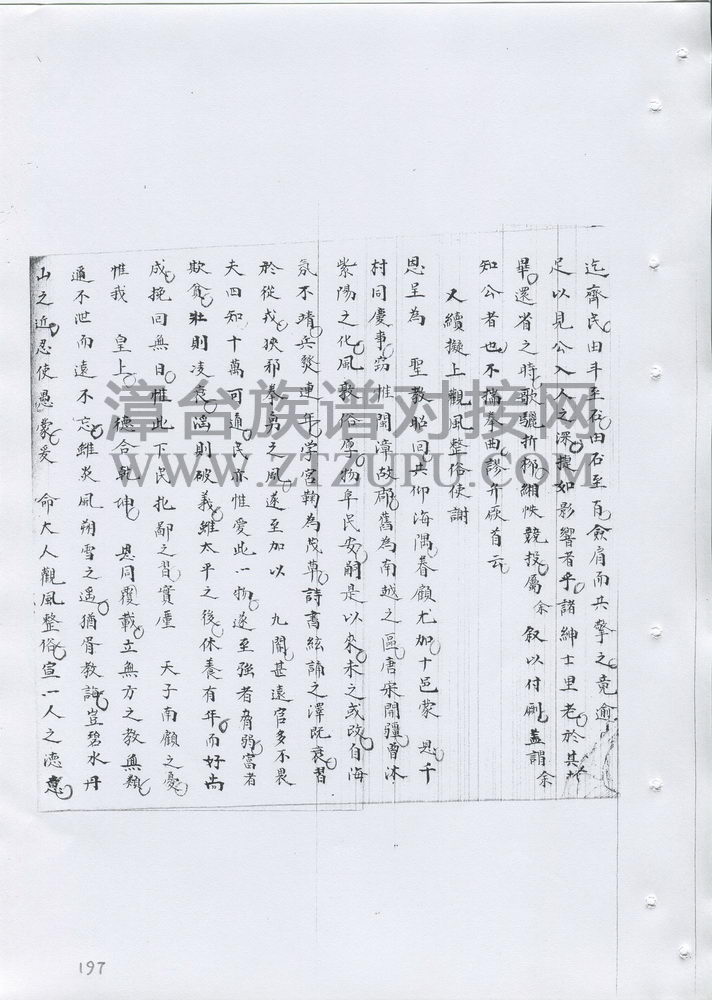 迄齊民由斗至石由石至百僉肩而共擎之竟逾
足以見公入人之深捷如影響者乎諸紳士里老於其
畢還省之時歌驪折柳緗帙競投屬余叙以付劂蓋謂余
知公者也不揣拳曲謬弁厥首云
又續擬上觀風整俗使謝
恩呈為 聖教昭回共仰海隅眷顧尤加十邑蒙 恩千
村同慶事窃惟閩漳故郡舊為南越之區唐宋開疆曾沐
紫陽之化風敦俗厚物阜民安嗣是以來未之或改自海
氛不靖兵燹連年學宮鞠為茂草詩書絃誦之澤既衰習
於從戎挾邪拳勇之風遂至加以 九閽甚遠官多不畏
夫四知十萬可通民亦惟愛此一物遂至強者脅弱富者
欺貧壯則凌衰澆則破義雖太平之後休養有年而好尚
成挽回無日惟此下民扎鄙之習實廑 天子南顧之憂
惟我 皇上 德合乾坤 恩同覆載立無方之教無類
邇不泄而遠不忘雖炎風朔雪之遥猶胥教誨豈碧水丹
山之近忍使愚蒙爰 命大人觀風整俗宣一人之德意
漳台族谱对接网
WWW.ZTZUPU.COM
197